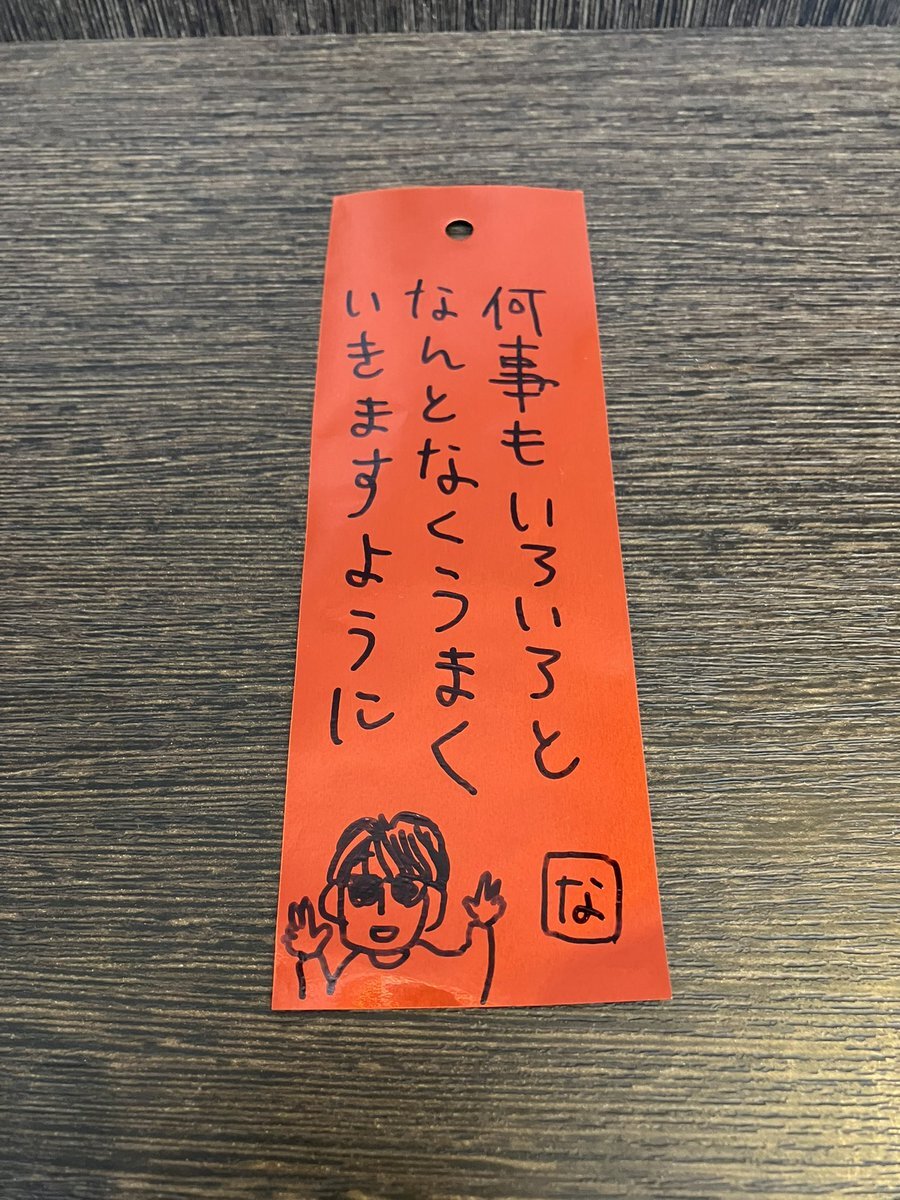 何事もいろいろと
なんとなくうまく
いきますように
な